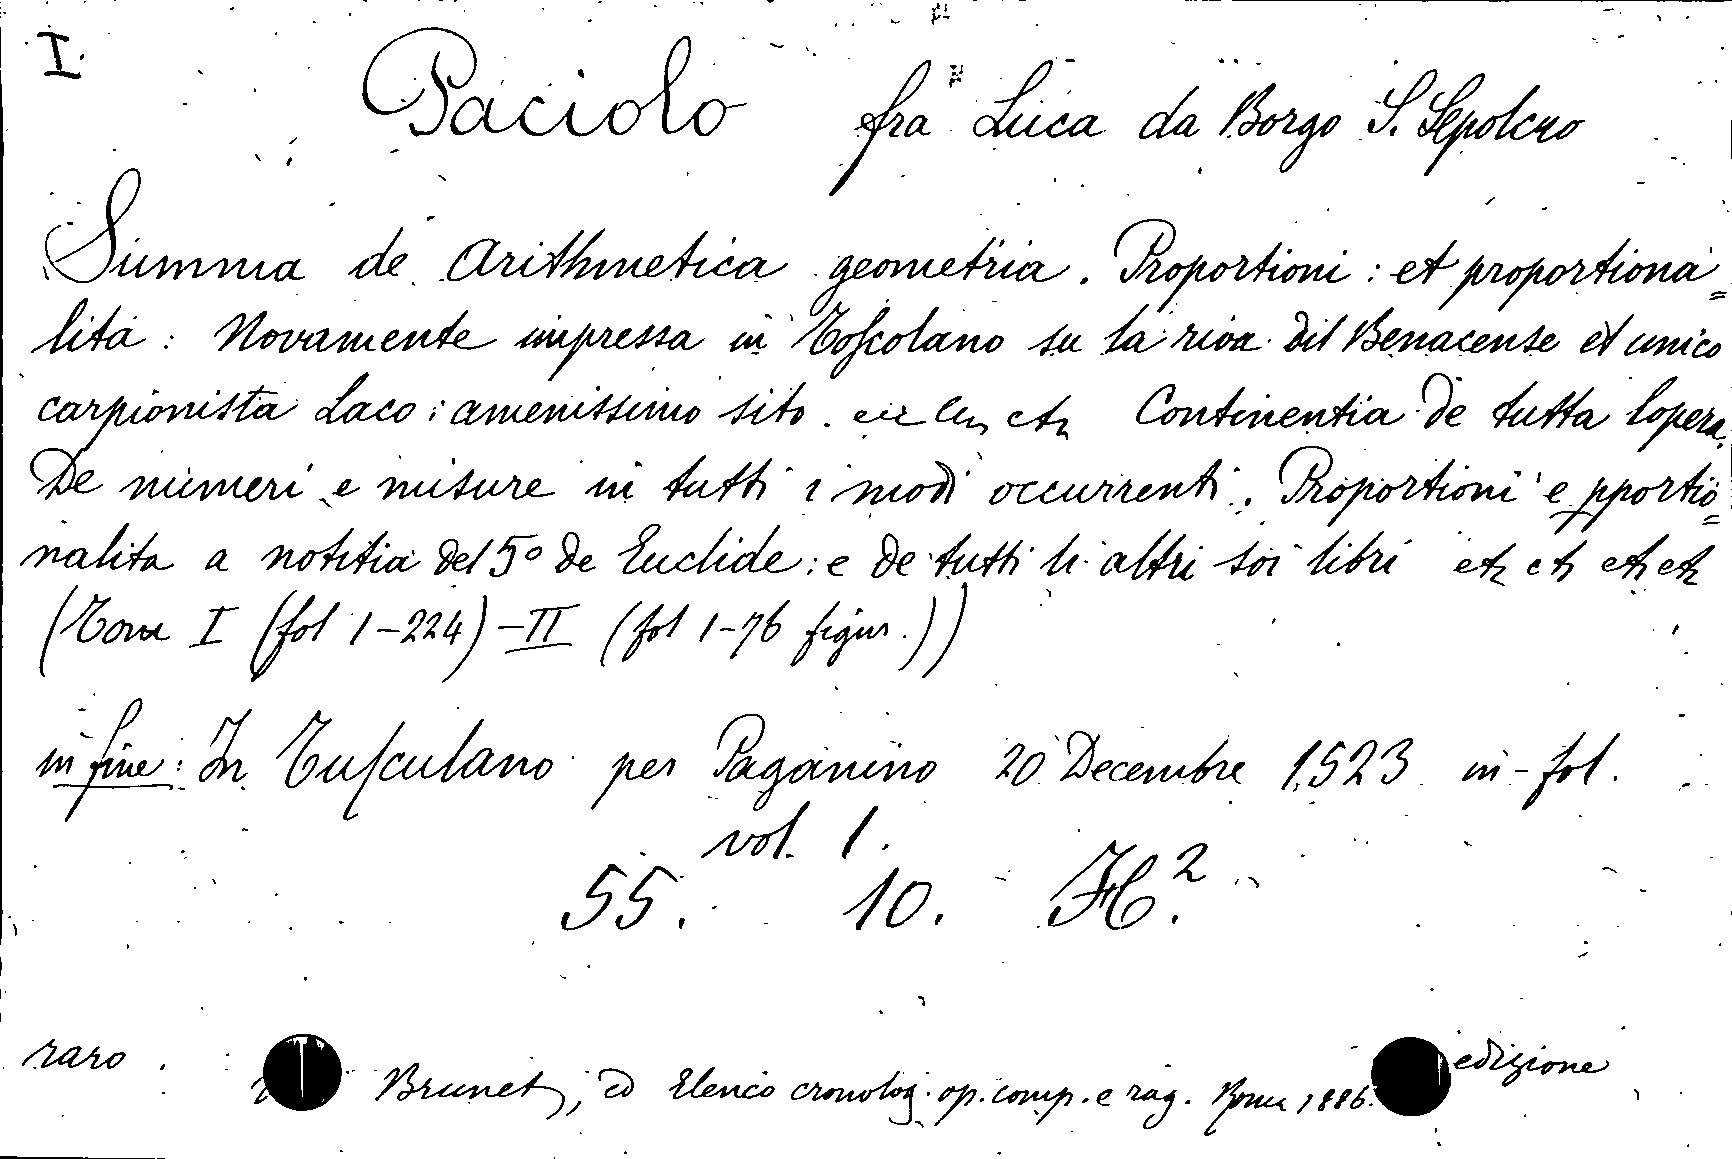 I.
Paciolo fra Luca da Borgo S. Sepolcro
Summa de Arithmetica geometria. Proportioni: et proportiona=
lita: Novamente impressa in Toscolano su la riva dil Benacense et unico
carpionista Laco: amenissimo sito. etc Continentia de tutta lopera.
De numeri e misure in tutti i modi occurrenti. Proportioni e pportio=
nalita a notitia del 5° de Euclide: e de tutti li altri soi libri etc etc etc etc
(Tom I (fol 1-224) - II (fol 1-76 figur.))
in fine: In Tusculano per Paganino 20 Decembre 1523 in-fol.
vol. 1.
55. 10. H².
raro. edizione
Brunet, ed Elenco cronolog. op. comp. e rag. Roma 1886.